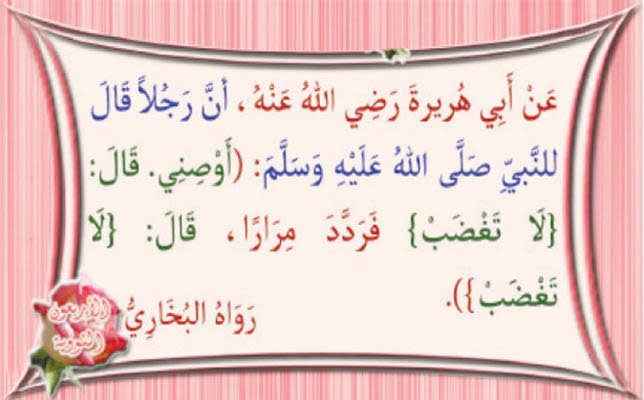 عَنْ أَبِي هُريرةَ رَضِي اللهُ عَنْهُ ، أنَّ رَجُلاً قَالَ
للنَّبيِّ صَلَّى اللهُ عَلَيْهِ وَسَلَّمَ: (أَوْصِنِي. قَالَ:
{لَا تَغْضَبْ} فَرَدَّدَ مِرَارًا ، قَالَ: {لَا
تَغْضَبْ}).
رَوَاهُ البُخَارِيُّ
الأربعون
النووية